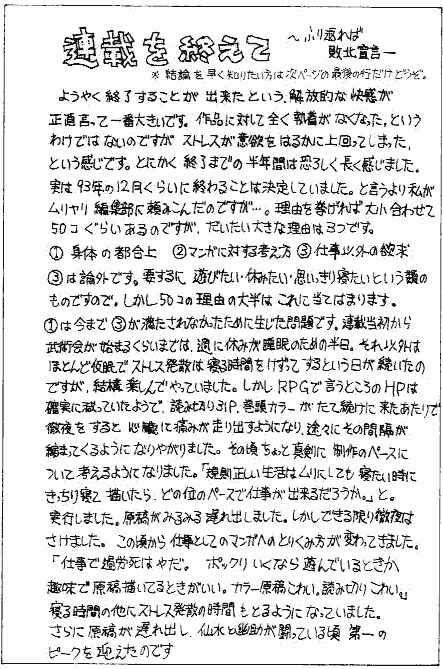 連載を終えて
～ふり返れば
敗北宣言―
※結論を早く知りたい方は次ページの最後の行だけどうぞ。
ようやく終了することが出来たという、解放的な快感が
正直言って一番大きいです。作品に対して全く執着がなくなった、という
わけではないのですがストレスが意欲をはるかに上回ってしまった、
という感じです。とにかく終了までの半年間は恐ろしく長く感じました。
実は93年の12月くらいに終わることは決定していました。と言うより私が
ムリヤリ編集部に頼みこんだのですが…。理由を挙げれば大小合わせて
50コぐらいあるのですが、だいたい大きな理由は3つです。
① 身体の都合上 ②マンガに対する考え方 ③仕事以外の欲求
③は論外です。要するに遊びたい・休みたい・思いっきり寝たいという類の
ものですので。しかし50コの理由の大半はこれに当てはまります。
①は今まで③が満たされなかったために生じた問題です。連載当初から
武術会が始まるくらいまでは、週に休みが睡眠のための半日。それ以外は
ほとんど仮眠でストレス発散は寝る時間をけずってするという日が続いたの
ですが、結構楽しんでやっていました。しかしRPGで言うところのHPは
確実に減っていたようで、読み切り31P、巻頭カラーがたて続けに来たあたりで
徹夜をすると心臓に痛みが走り出すようになり、徐々にその間隔が
縮まってくるようになりやがりました。その頃ちょっと真剣に制作のペースに
ついて考えるようになりました。「規則正しい生活はムリにしても寝たい時に
きっちり寝て描いたら、どの位のペースで仕事が出来るだろうか。」と。
実行しました。原稿がみるみる遅れ出しました。しかしできる限り徹夜は
さけました。この頃から仕事としてのマンガへのとりくみ方が変わってきました。
「仕事で過労死はやだ。ポックリいくなら遊んでいるときか
趣味で原稿描いてるときがいい。カラー原稿こわい。読み切りこわい。」
寝る時間の他にストレス発散の時間もとるようになっていました。
さらに原稿が遅れ出し、仙水と幽助が闘っている頃第一の
ピークを迎えたのです